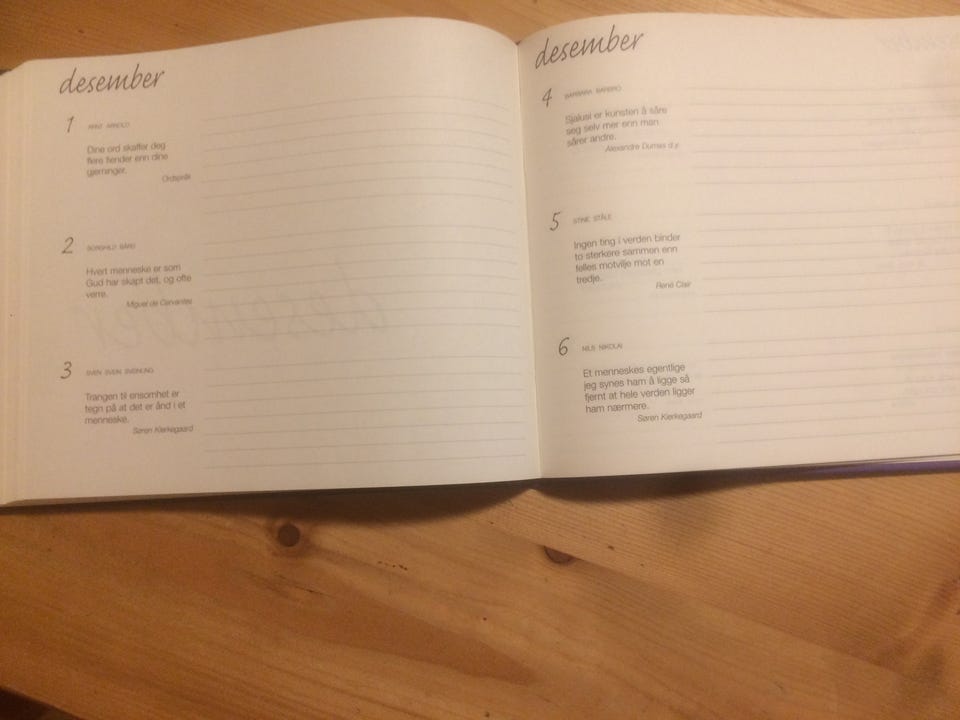 desember
1 ARNE ARNOLD
Dine ord skaffer deg
flere fiender enn dine
gjerninger.
Ordspråk
2 BORGHILD BÅRD
Hvert menneske er som
Gud har skapt det, og ofte
verre.
Miguel de Cervantes
3 SVEN SVEIN SVEINUNG
Trangen til ensomhet er
tegn på at det er ånd i et
menneske.
Søren Kierkegaard
desember
4 BARBARA BARBRO
Sjalusi er kunsten å såre
seg selv mer enn man
sårer andre.
Alexandre Dumas d.y.
5 STINE STÅLE
Ingen ting i verden binder
to sterkere sammen enn
felles motvilje mot en
tredje.
René Clair
6 NILS NIKOLAI
Et menneskes egentlige
jeg synes ham å ligge så
fjernt at hele verden ligger
ham nærmere.
Søren Kierkegaard